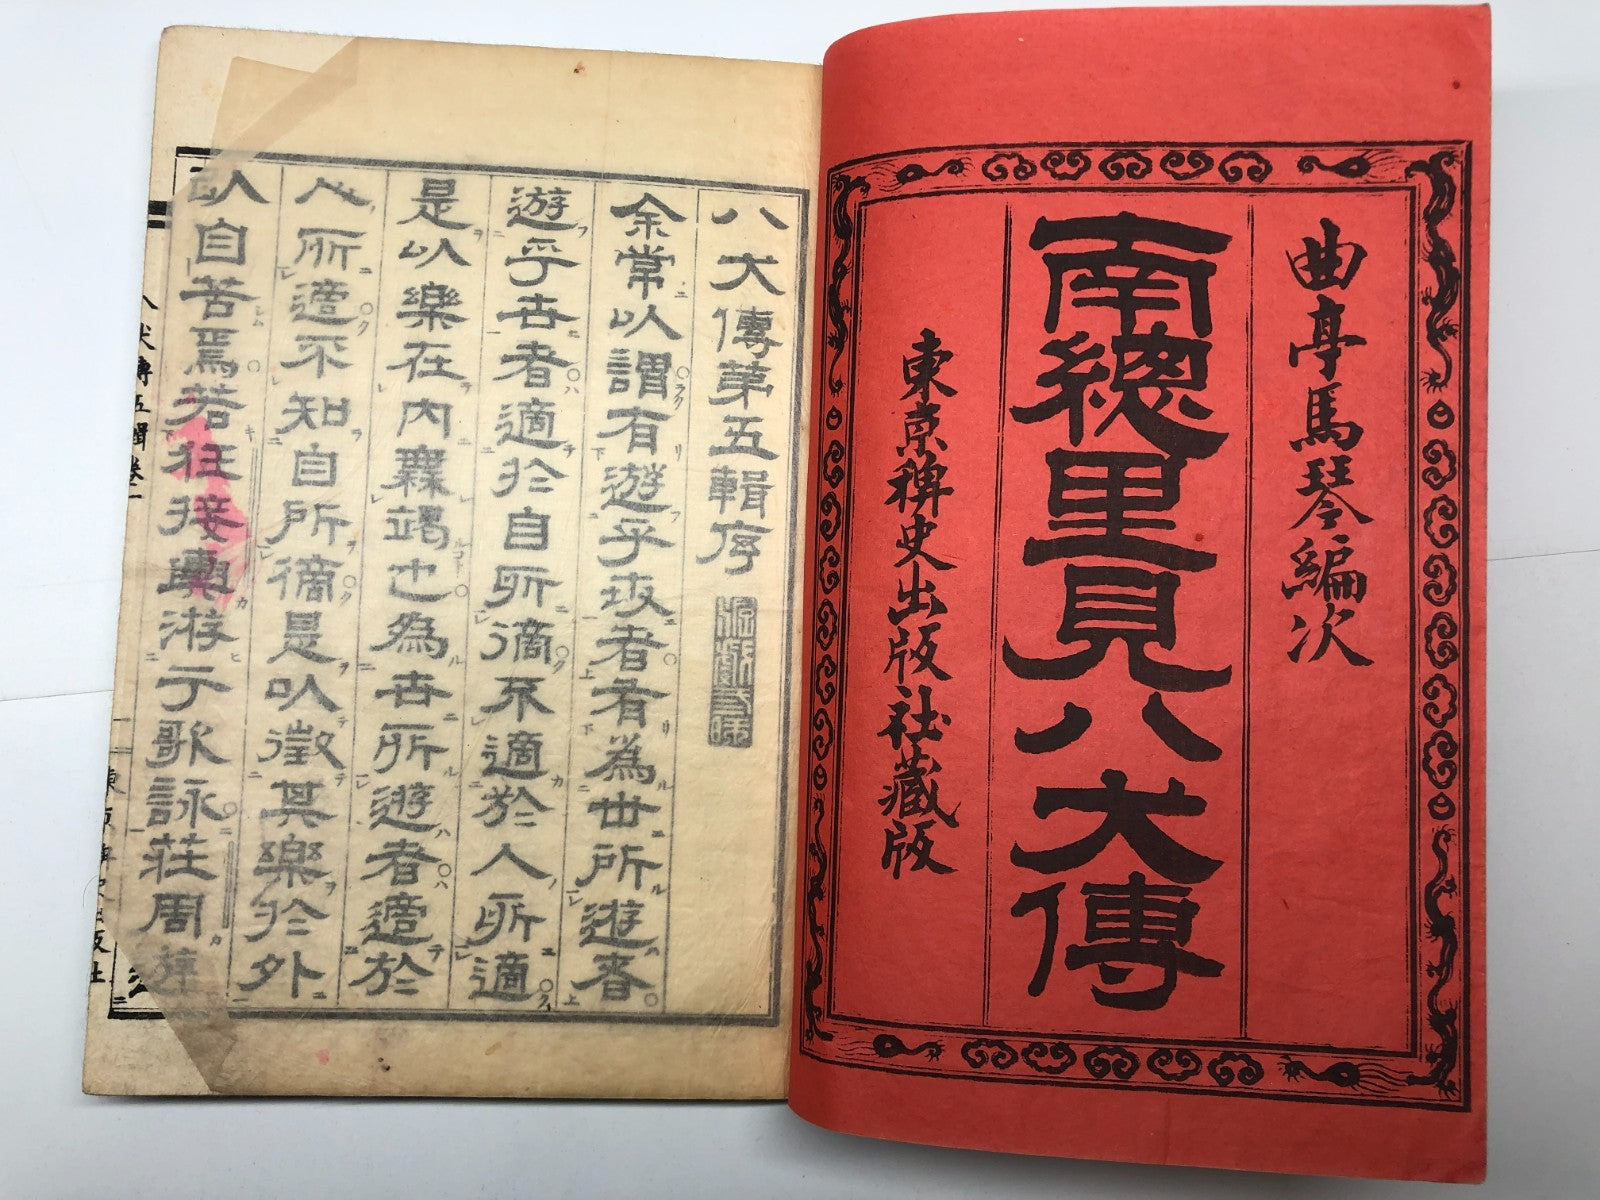 曲亭馬琴編次
南總里見八犬傳
東京稗史出版社藏版
八犬傳第五輯序
余常以謂有遊乎世者有為世所遊者
遊乎世者適於自所適不適於人所適
是以樂在內無竭也為世所遊者適於
人所適不知自所適是以徵其樂於外
以自苦焉若徃接輿游于歌詠莊周
八犬傳五輯卷一